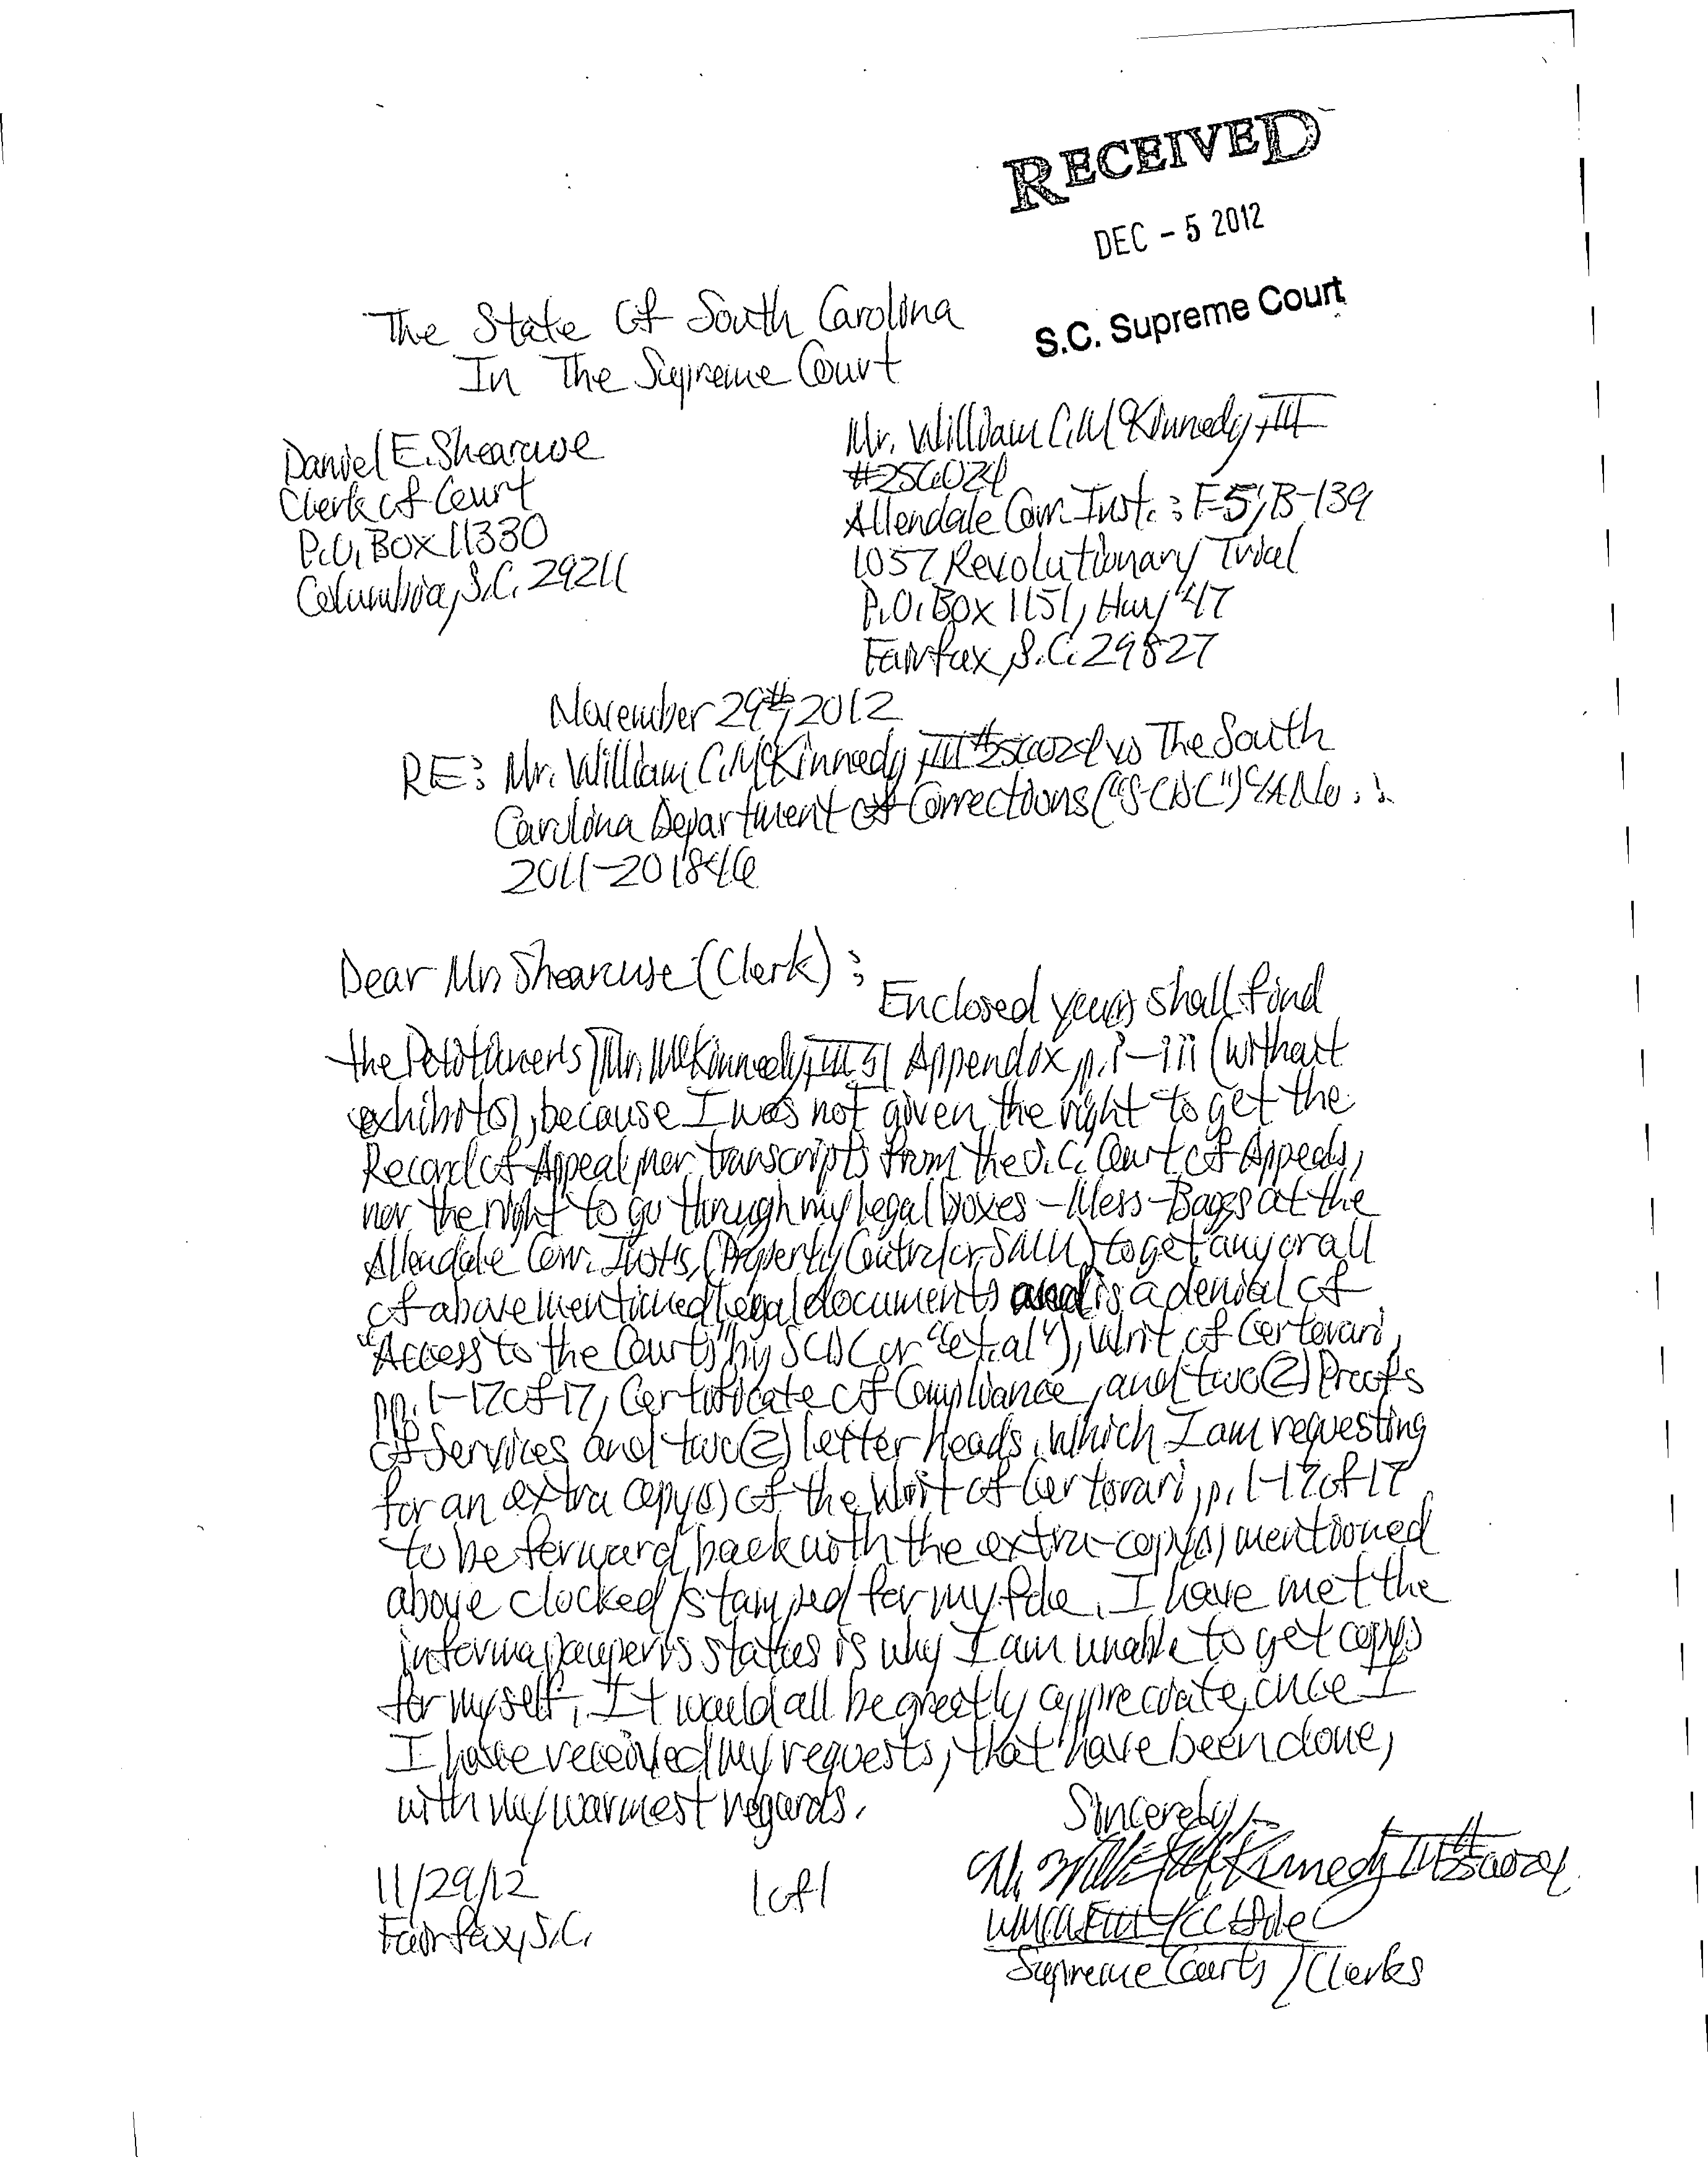 RECEIVED
DEC - 5 2012
S.C. Supreme Court
The State Of South Carolina
In The Supreme Court
Daniel E. Shearouse
Clerk of Court
P.O. Box 11330
Columbia, S.C. 29211
Mr. William C. McKinnedy, III
#256024
Allendale Corr. Inst.: F-5; B-139
1057 Revolutionary Trial
P.O. Box 1151, Hwy 47
Fairfax, S.C. 29827
November 29th, 2012
RE: Mr. William C. McKinnedy, III #256024 vs The South
Carolina Department of Corrections ("SCDC") C/A No.:
2011-201846
Dear Mr. Shearouse (Clerk):
Enclosed yours shall find
the Petitioner's [Mr. McKinnedy, III's] Appendix p. i-iii (without
exhibits), because I was not given the right to get the
Record of Appeal, nor transcripts from the S.C. Court of Appeals,
nor the right to go through my legal boxes-Mess-Bags at the
Allendale Corr. Insts, (Property Control or SMU) to get any or all
of above mentioned legal documents and is a denial of
"Access to the Courts" by SCDC or "et.al"), Writ of Certorari,
pp. 1-17 of 17, Certificate of Compliance, and two(2) Proofs
of Services and two(2) letter heads. Which I am requesting
for an extra copy(s) of the Writ of Certorari, p. 1-17 of 17
to be forward back with the extra-copy(s) mentioned
above clocked/stamped for my file. I have met the
informa pauperis status is why I am unable to get copys
for myself. It would all be greatly appreciate, once I
I have received my requests, that have been done,
with my warmest regards.
Sincerely,
Mr. McKinnedy III #256024
11/29/12
1 of 1
Fairfax, S.C.
WMCM III/CC File
Supreme Courts / Clerks